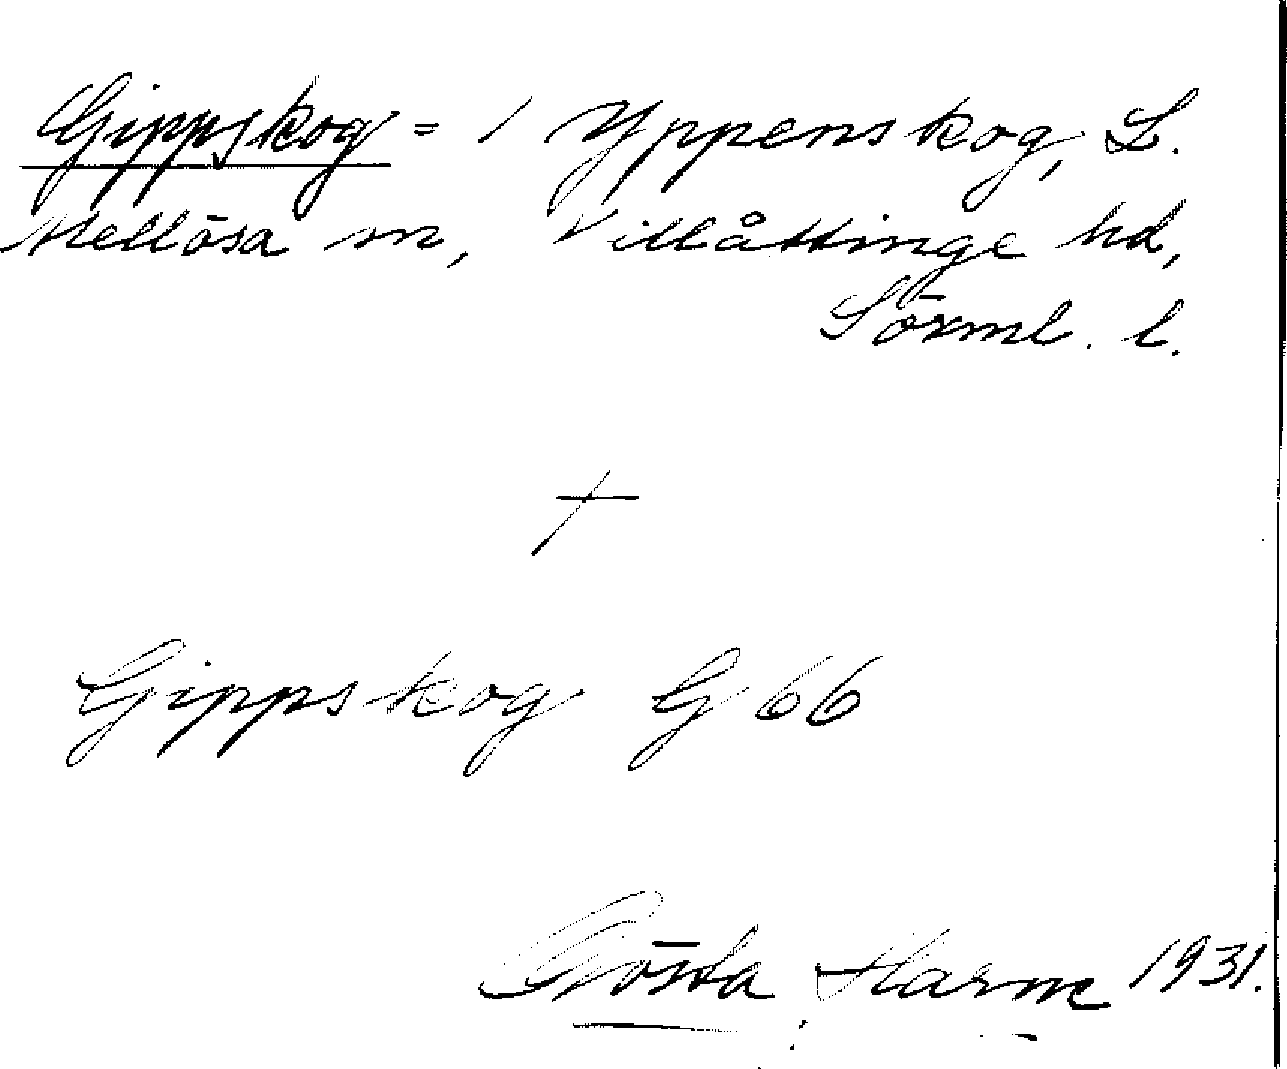 Gippskog = / Yppenskog, L.
Mellösa sn, Villåttinge hd,
Sörml. l.
+
Gippskog G 66
Gösta Harm 1931.